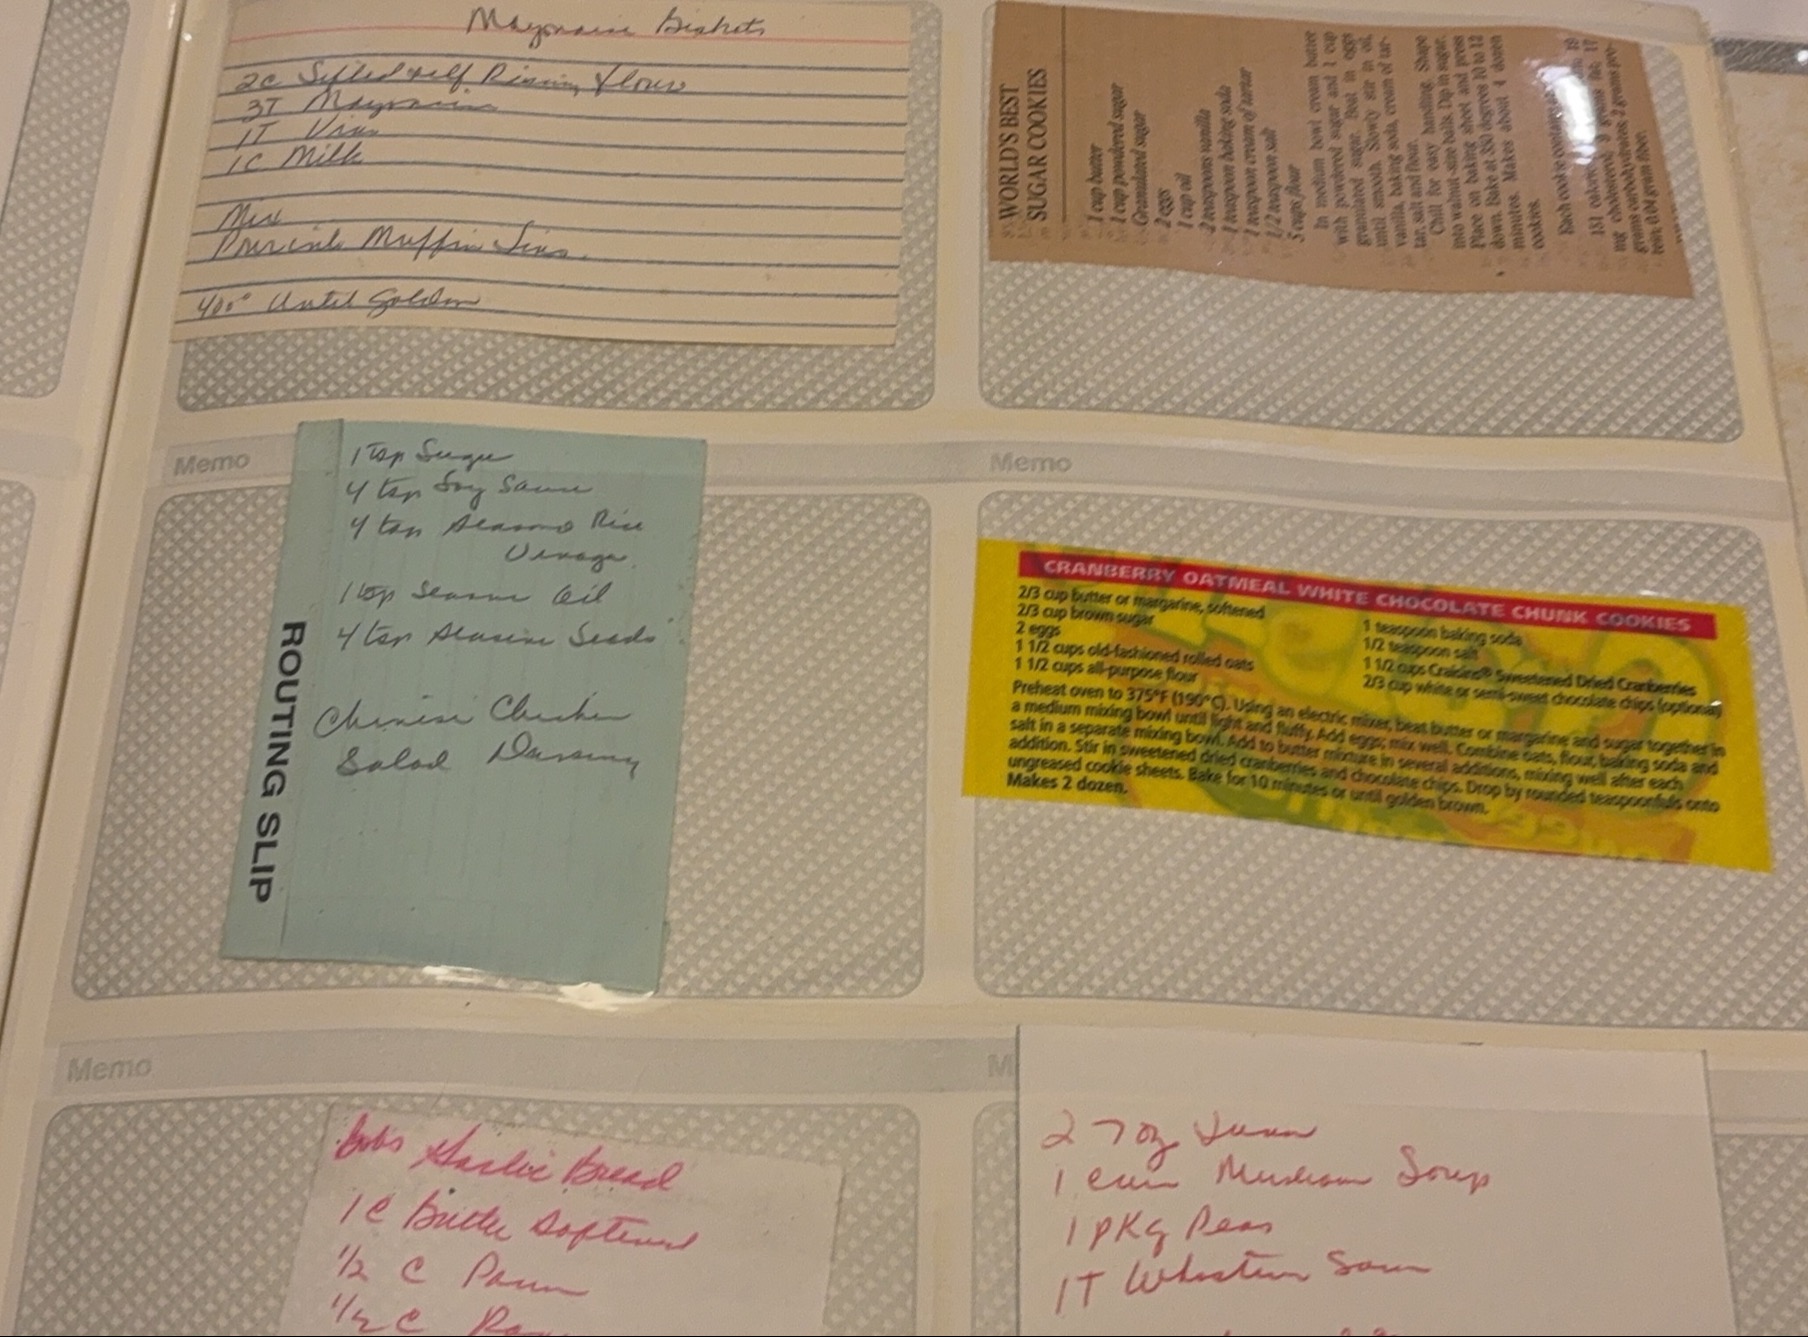 Mayonaise Biskets
2C Sifted self Rising flour
3T Mayonaise
1T
1C Milk
Mix
Muffin Tins.
400° Until Golden
WORLD'S BEST
SUGAR COOKIES
1 cup butter
1 cup powdered sugar
Granulated sugar
2 eggs
1 cup oil
2 teaspoons vanilla
1 teaspoon baking soda
1 teaspoon cream of tartar
1/2 teaspoon salt
5 cups flour
In medium bowl cream butter
with powdered sugar and 1 cup
granulated sugar. Beat in eggs
until smooth. Slowly stir in oil,
vanilla, baking soda, cream of tar-
tar, salt and flour.
Chill for easy handling. Shape
into walnut-size balls. Dip in sugar.
Place on baking sheet and press
down. Bake at 350 degrees 10 to 12
minutes. Makes about 4 dozen
cookies.
Each cookie
131
mg cholesterol;
grams carbohydrates; 2 grams pro-
tein; 0.04 gram fiber.
Memo
1 tsp Sugar
4 tsp Soy Sauce
4 tsp Rice
Vinagar
1 tsp Oil
4 tsp Seeds
Chinese Chicken
Salad Dressing
ROUTING SLIP
Memo
CRANBERRY OATMEAL WHITE CHOCOLATE CHUNK COOKIES
2/3 cup butter or margarine, softened
2/3 cup brown sugar
2 eggs
1 1/2 cups old-fashioned rolled oats
1 1/2 cups all-purpose flour
1 teaspoon baking soda
1/2 teaspoon salt
1 1/2 cups Craisins® Sweetened Dried Cranberries
2/3 cup white or semi-sweet chocolate chips (optional)
Preheat oven to 375°F (190°C). Using an electric mixer, beat butter or margarine and sugar together in
a medium mixing bowl until light and fluffy. Add eggs; mix well. Combine oats, flour, baking soda and
salt in a separate mixing bowl. Add to butter mixture in several additions, mixing well after each
addition. Stir in sweetened dried cranberries and chocolate chips. Drop by rounded teaspoonfuls onto
ungreased cookie sheets. Bake for 10 minutes or until golden brown.
Makes 2 dozen.
Memo
Bobs Garlic Bread
1 C Butter Softened
1/2 C Parm
1/2 C
M
2 7 oz Tuna
1 can Mushroom Soup
1 pkg Peas
1T